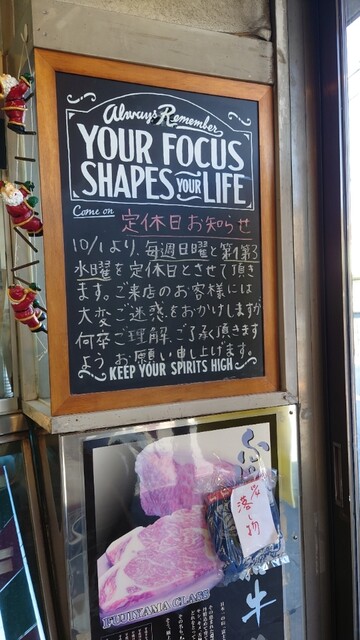 Always Remember
YOUR FOCUS
SHAPES YOUR LIFE
Come on 定休日お知らせ
10/1より、毎週日曜と第1第3
水曜を定休日とさせて頂き
ます。ご来店のお客様には
大変ご迷惑をおかけしますが
何卒ご理解、ご了承頂きます
ようお願い申し上げます。
KEEP YOUR SPIRITS HIGH
落し物
牛
FUJIYAMA CLASS